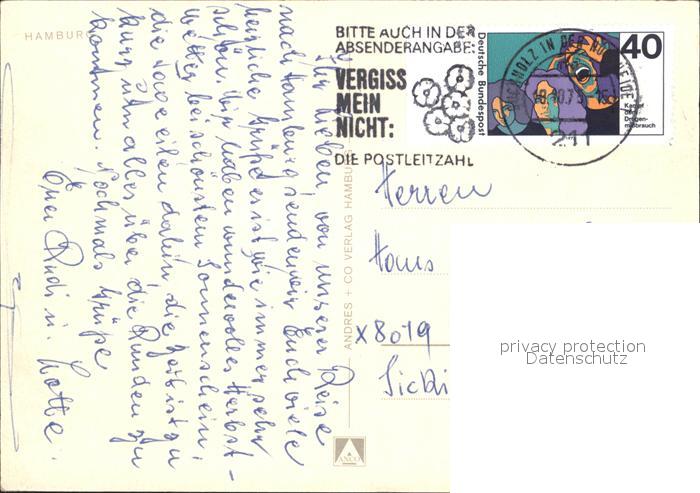 HAMBURG
Ihr Lieben, von unserer Reise
nach Hamburg senden wir Euch viele
herzliche Grüße es ist wie immer sehr
schön. Wir haben wundervolles Herbst-
wetter bei schönstem Sonnenschein,
die Tage eilen dahin, die Zeit ist zu
kurz um alles über die Runden zu
kommen. Nochmals Grüße
Eure Rudi u. Lotte.
ANDRES + CO VERLAG HAMBURG
ANCO
BITTE AUCH IN DER
ABSENDERANGABE:
VERGISS
MEIN
NICHT:
DIE POSTLEITZAHL
Deutsche Bundespost
40
Kampf
dem
Drogen-
mißbrauch
BUCHHOLZ IN DER NORDHEIDE
211
Herren
Hans
X8019
privacy protection
Datenschutz